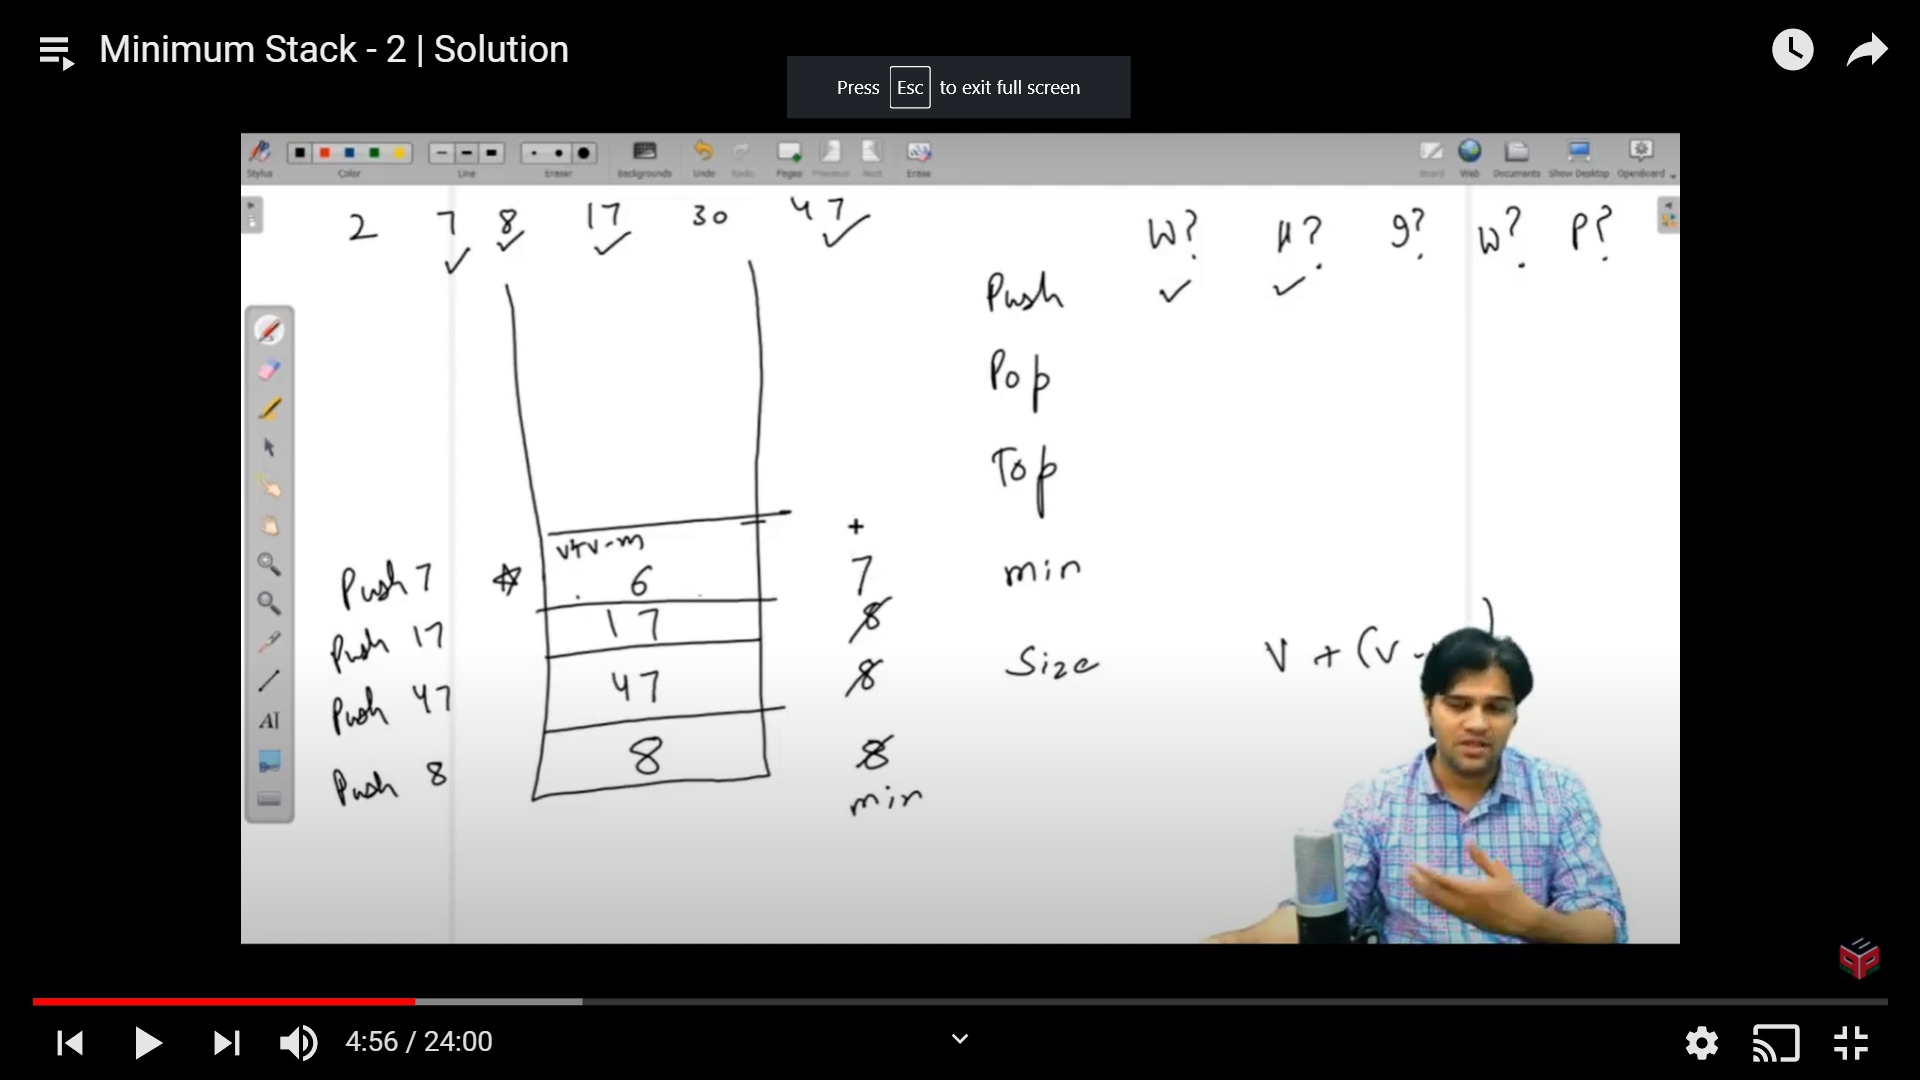 Minimum Stack - 2 | Solution
Press Esc to exit full screen
Stylus Color Line Eraser Backgrounds Undo Redo Pages Previous Next Erase Board Web Documents Show Desktop OpenBoard
2 7 8 17 30 47
W? H? 9? W? P?
Push
Pop
Top
min
Size
V + (V -
)
v+v-m
+
Push 7 6 7
Push 17 17 8
Push 47 47 8
Push 8 8 8
min
AI
4:56 / 24:00